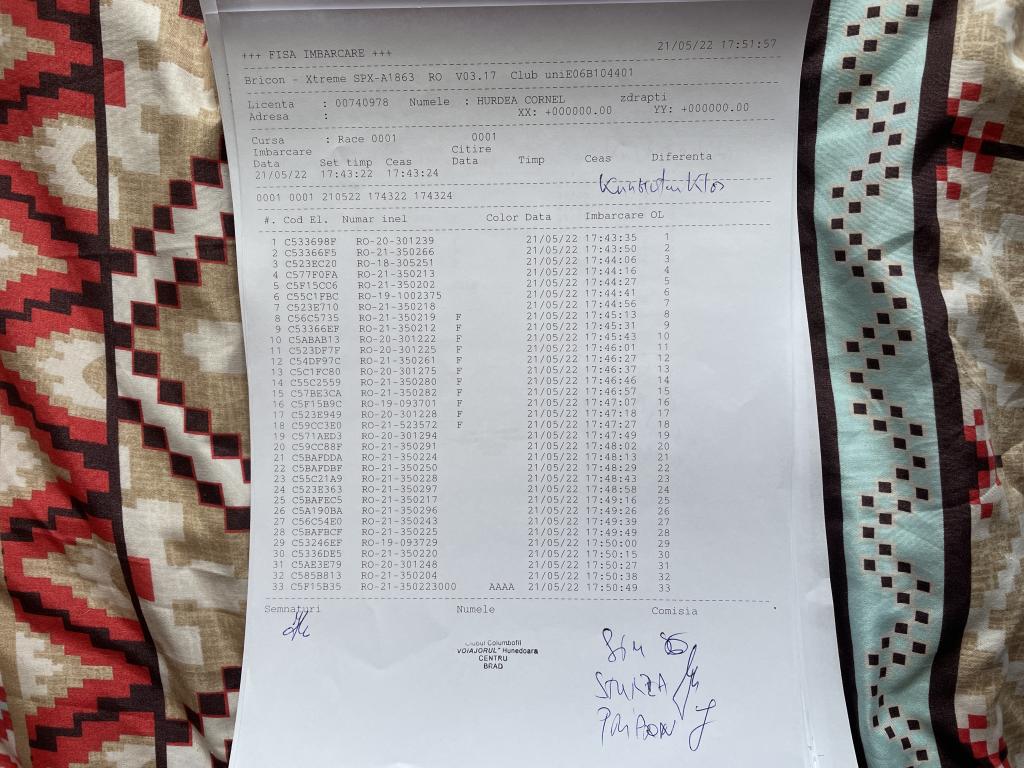 +++ FISA IMBARCARE +++ 21/05/22 17:51:57
Bricon - Xtreme SPX-A1863 RO V03.17 Club uniE06B104401
Licenta : 00740978 Numele : HURDEA CORNEL zdrapti
Adresa : XX: +000000.00 YY: +000000.00
Cursa : Race 0001 0001
Imbarcare Citire
Data Set timp Ceas Data Timp Ceas Diferenta
21/05/22 17:43:22 17:43:24
0001 0001 210522 174322 174324
#. Cod El. Numar inel Color Data Imbarcare OL
1 C533698F RO-20-301239 21/05/22 17:43:35 1
2 C53366F5 RO-21-350266 21/05/22 17:43:50 2
3 C523EC20 RO-18-305251 21/05/22 17:44:06 3
4 C577F0FA RO-21-350213 21/05/22 17:44:16 4
5 C5F15CC6 RO-21-350202 21/05/22 17:44:27 5
6 C55C1FBC RO-19-1002375 21/05/22 17:44:41 6
7 C523E710 RO-21-350218 21/05/22 17:44:56 7
8 C56C5735 RO-21-350219 F 21/05/22 17:45:13 8
9 C53366EF RO-21-350212 F 21/05/22 17:45:31 9
10 C5ABAB13 RO-20-301222 F 21/05/22 17:45:43 10
11 C523DF7F RO-20-301225 F 21/05/22 17:46:01 11
12 C54DF97C RO-21-350261 F 21/05/22 17:46:27 12
13 C5C1FC80 RO-20-301275 F 21/05/22 17:46:37 13
14 C55C2559 RO-21-350280 F 21/05/22 17:46:46 14
15 C57BE3CA RO-21-350282 F 21/05/22 17:46:57 15
16 C5F15B9C RO-19-093701 F 21/05/22 17:47:07 16
17 C523E949 RO-20-301228 F 21/05/22 17:47:18 17
18 C59CC3E0 RO-21-523572 F 21/05/22 17:47:27 18
19 C571AED3 RO-20-301294 21/05/22 17:47:49 19
20 C59CC88F RO-21-350291 21/05/22 17:48:02 20
21 C5BAFDDA RO-21-350224 21/05/22 17:48:13 21
22 C5BAFDBF RO-21-350250 21/05/22 17:48:29 22
23 C55C21A9 RO-21-350228 21/05/22 17:48:43 23
24 C523E363 RO-21-350297 21/05/22 17:48:58 24
25 C5BAFEC5 RO-21-350217 21/05/22 17:49:16 25
26 C5A190BA RO-21-350296 21/05/22 17:49:26 26
27 C56C54E0 RO-21-350243 21/05/22 17:49:39 27
28 C5BAFBCF RO-21-350225 21/05/22 17:49:49 28
29 C53246EF RO-19-093729 21/05/22 17:50:00 29
30 C5336DE5 RO-21-350220 21/05/22 17:50:15 30
31 C5AE3E79 RO-20-301248 21/05/22 17:50:27 31
32 C585B813 RO-21-350204 21/05/22 17:50:38 32
33 C5F15B35 RO-21-350223000 AAAA 21/05/22 17:50:49 33
Semnaturi Numele Comisia
Clubul Columbofil
"VOIAJORUL" Hunedoara
CENTRU
BRAD